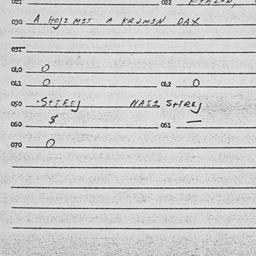 021 022
030 A HOJ2 MIT A KRUMIN DAX
031
040 O
041 O 042 O
050 -StIREJ NASI StIREJ
060 $ 061 —
070 O